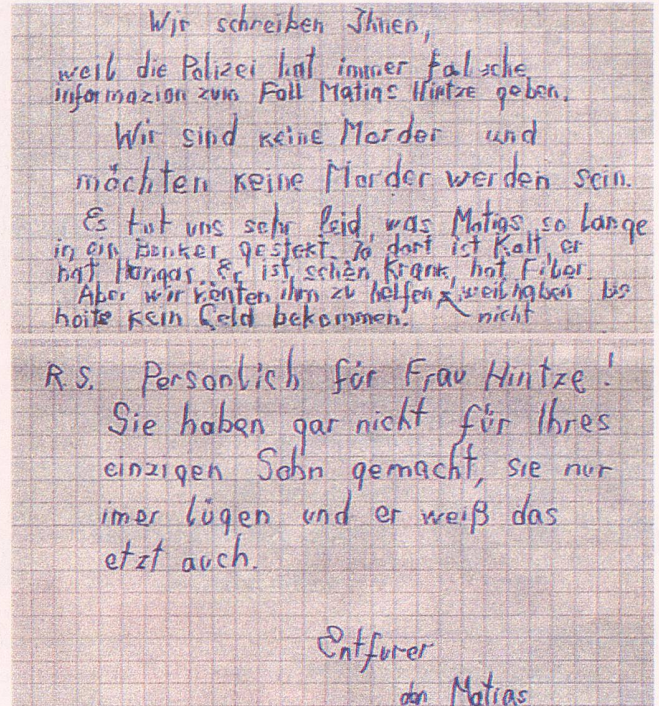 Wir schreiben Ihnen,
weil die Polizei hat immer falsche
informazion zum Fall Matias Hintze geben.
Wir sind keine Morder und
möchten keine Morder werden sein.
Es tut uns sehr leid, was Matias so lange
in ein Benker gestekt. dort ist Kalt, er
hat Hungar. Er ist schön Krank, hat Fiber.
Aber wir kenten ihm zu helfen weil haben bis
nicht
hoite kein Geld bekommen.
P.S. Personlich für Frau Hintze!
Sie haben gar nicht für Ihres
einzigen Sohn gemacht, sie nur
imer lügen und er weiß das
etzt auch.
Entfurer
Matias